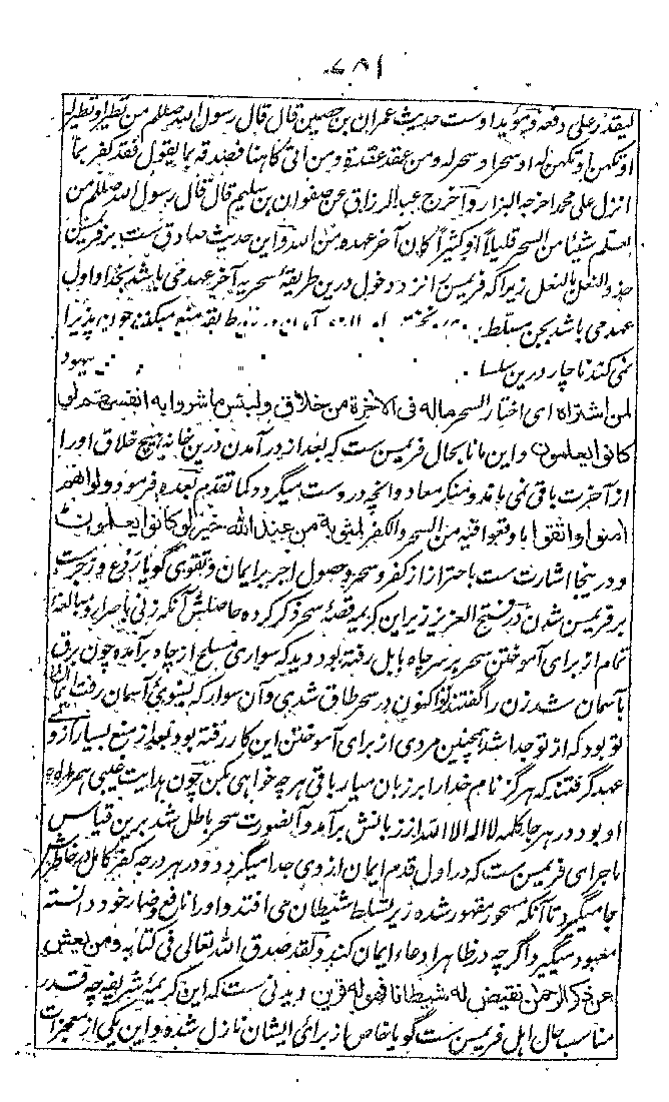 لیقدر علی دفعه و مؤید اوست حدیث عمران بن حصین قال قال رسول الله صللم من تطیر او تطیر له
او تکهن او تکهن له او سحر او سحر له و من عقد عقدة و من اتی کاهنا فصدقه بما یقول فقد کفر بما
انزل علی محمد اخرجه البزار و اخرج عبد الرزاق عن صفوان بن سلیم قال قال رسول الله صللم من
تعلم شیئا من السحر قلیلاً او کثیراً کان آخر عهده من الله و این حدیث صادق ست بر فریمسن
حذو النعل بالنعل زیرا که فریمسن را نزد دخول درین طریقهٔ سحریه آخر عهد می باشد بخدا و اول
عهد می باشد بجن مسلط طریقه منع میکند چون پذیرا
نمی کنند ناچار درین یهود
لمن اشتراه ای اختار السحر ماله فی الآخرة من خلاق و لبئس ما شروا به انفسهم لو
کانوا یعلمون و این مانا بحال فریمسن ست که بعد از در آمدن درین خانه هیچ خلاق او را
از آخرت باقی نمی ماند و منکر معاد و آنچه در وست میگردد کما تقدم بعده فرمود و لو انهم
امنوا و اتقوا ما وقعوا فیه من السحر و الکفر لمثوبة من عند الله خیر لو کانوا یعلمون
و درینجا اشارت ست باحتراز از کفر و سحر و حصول اجر بر ایمان و تقوی گویا ردع و زجرست
بر فریمسن شدن در فتح العزیز زیر این کریمه قصهٔ سحر ذکر کرده حاصلش آنکه زنی باصرار و مبالغهٔ
تمام از برای آموختن سحر بر سر چاه بابل رفته بود دید که سواری مسلح از چاه برآمده چون برق
بآسمان شد زن را گفتند تو اکنون در سحر طاق شدی و آن سوار که بسوی آسمان رفت ایمان
تو بود که از تو جدا شد همچنین مردی از برای آموختن این کار رفته بود بعد از منع بسیار از و
عهد گرفتند که هرگز نام خدا را بر زبان میار باقی هر چه خواهی بکن چون هدایت غیبی همراه
او بود در هر جا کلمه لا اله الا الله از زبانش برآمد و آنصورت سحر باطل شد برین قیاس
ماجرای فریمسن ست که در اول قدم ایمان از وی جدا میگردد و در هر درجه کفر کامل در خاطرش
جا میگیرد تا آنکه مسحور مقهور شده زیر تسلط شیطان می افتد و او را نافع و ضار خود دانسته
معبود میگیرد اگر چه در ظاهر ادعاء ایمان کند و لقد صدق الله تعالی فی کتابه و من یعش
عن ذکر الرحمن نقیض له شیطانا فهو له قرین دیدنی ست که این کریمهٔ شریفه چه قدر
مناسب حال اهل فریمسن ست گویا خاص از برای ایشان نازل شده و این یکی از معجزات